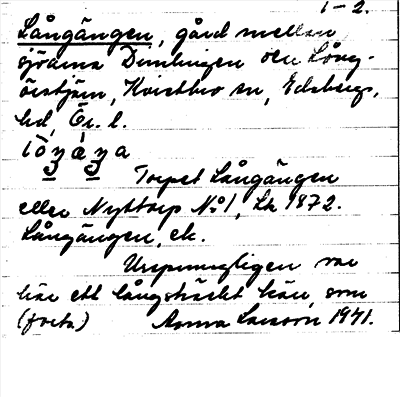 1-2.
Långängen, gård mellan
sjöarna Dunlungen och Lång-
örstjärn, Kvistbro sn, Edsbergs
hd, Ör. l.
Torpet Långängen
eller Nyttorp No 1, Lk 1872.
Långängen, ek.
Ursprungligen var
här ett långsträckt kärr, som
(forts.) Anna Larsson 1941.